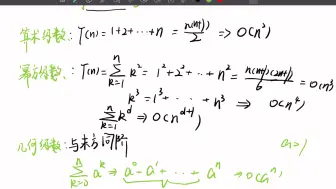 算术级数: T(n) = 1+2+⋯+n = n(n+1)/2 => O(n²)
幂方级数: T(n) = ∑_{k=1}^{n} k² = 1²+2²+⋯+n² = n(n+1)(2n+1)/6 = O(n³)
k³ = 1³+⋯+n³ => O(n⁴)
∑_{k=1}^{n} k^d => O(n^{d+1})
几何级数: 与末方同阶 a>1
∑_{k=0}^{n} a^k => a⁰+a¹+⋯+aⁿ => O(aⁿ)